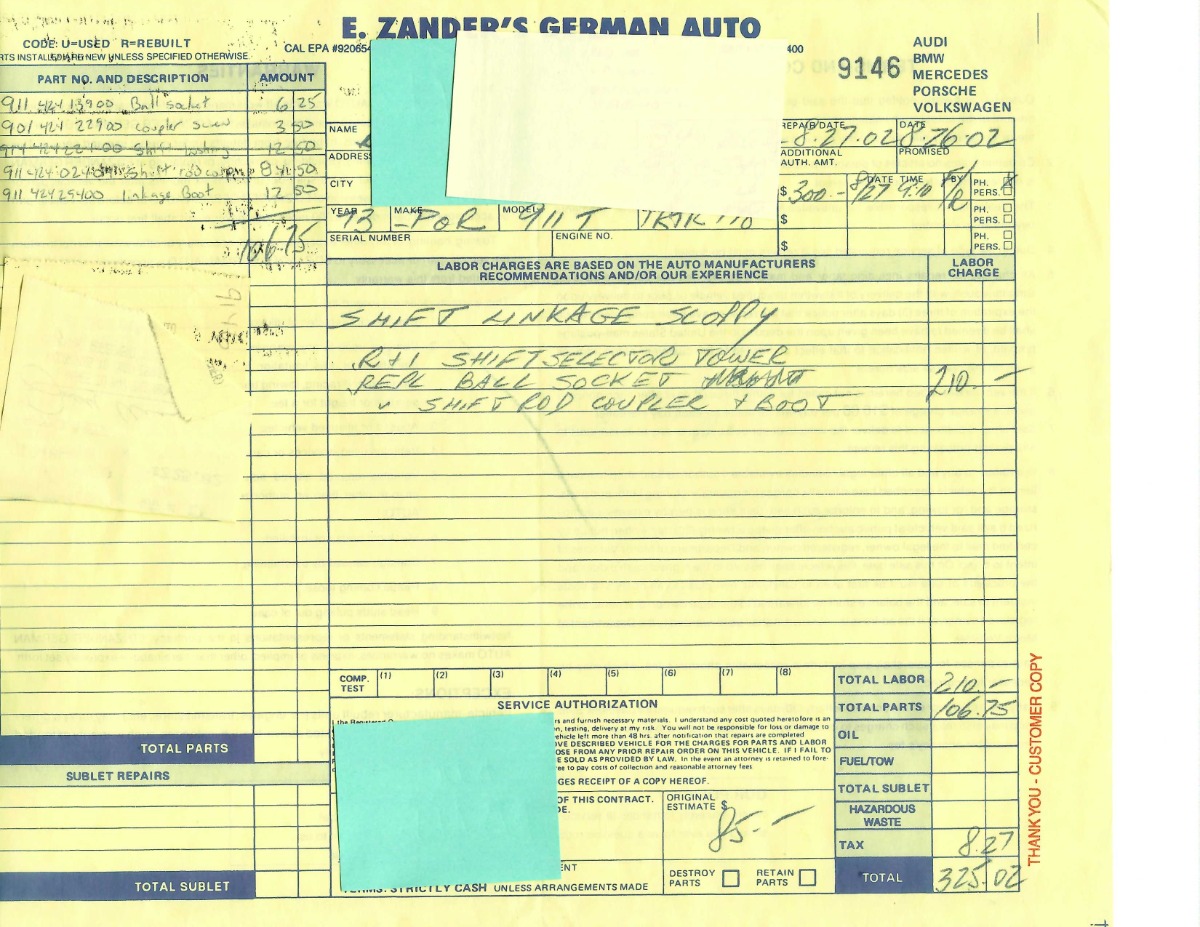 E. ZANDER'S GERMAN AUTO
CODE: U=USED R=REBUILT
NEW UNLESS SPECIFIED OTHERWISE.
CAL EPA #92065
400
9146
AUDI
BMW
MERCEDES
PORSCHE
VOLKSWAGEN
PART NO. AND DESCRIPTION AMOUNT
911 424 139 00 Ball socket 6 25
901 424 229 00 coupler screw 3 50
914 424 221 00 shift bushing 12 50
911 424 024 shift rod coup 84 50
911 424 254 00 linkage Boot 12 50
106.75
NAME
ADDRESS
CITY
REPAIR DATE 8.27.02
DATE PROMISED 8.26.02
ADDITIONAL AUTH. AMT. DATE TIME BY PH. PERS.
$ 300 - 8/27 9:10 PH. PERS.
$ PH. PERS.
$ PH. PERS.
YEAR 73 MAKE POR MODEL 911 T
SERIAL NUMBER ENGINE NO.
LABOR CHARGES ARE BASED ON THE AUTO MANUFACTURERS
RECOMMENDATIONS AND/OR OUR EXPERIENCE
LABOR CHARGE
SHIFT LINKAGE SLOPPY
R+I SHIFT SELECTOR TOWER
REPL BALL SOCKET 210.-
" SHIFT ROD COUPLER + BOOT
COMP. TEST (1) (2) (3) (4) (5) (6) (7) (8)
SERVICE AUTHORIZATION
rs and furnish necessary materials. I understand any cost quoted heretofore is an
, testing, delivery at my risk. You will not be responsible for loss or damage to
ehicle left more than 48 hrs. after notification that repairs are completed
VE DESCRIBED VEHICLE FOR THE CHARGES FOR PARTS AND LABOR
OSE FROM ANY PRIOR REPAIR ORDER ON THIS VEHICLE. IF I FAIL TO
E SOLD AS PROVIDED BY LAW. In the event an attorney is retained to fore-
ee to pay costs of collection and reasonable attorney fees.
GES RECEIPT OF A COPY HEREOF.
OF THIS CONTRACT.
DE.
ORIGINAL ESTIMATE $ 85.-
ENT
TERMS: STRICTLY CASH UNLESS ARRANGEMENTS MADE
DESTROY PARTS
RETAIN PARTS
TOTAL PARTS
SUBLET REPAIRS
TOTAL SUBLET
TOTAL LABOR 210.-
TOTAL PARTS 106.75
OIL
FUEL/TOW
TOTAL SUBLET
HAZARDOUS WASTE
TAX 8.27
TOTAL 325.02
THANK YOU - CUSTOMER COPY